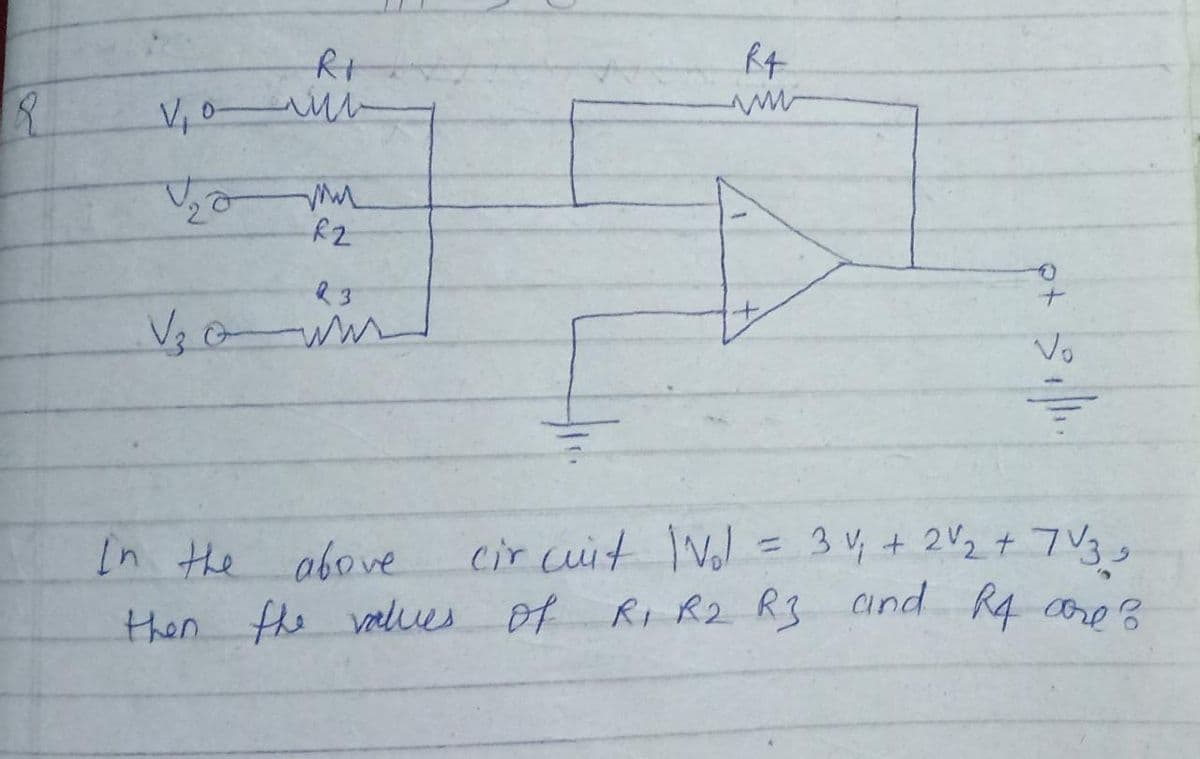 R1
R4
V1
V2
R2
R3
V3
-
+
+
Vo
-
In the above circuit |Vo| = 3V1 + 2V2 + 7V3,
then the values of R1 R2 R3 and R4 are?